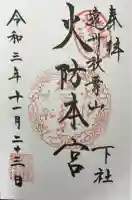 奉拝
遠州秋葉山
下社
火防本宮
令和三年十一月二十三日